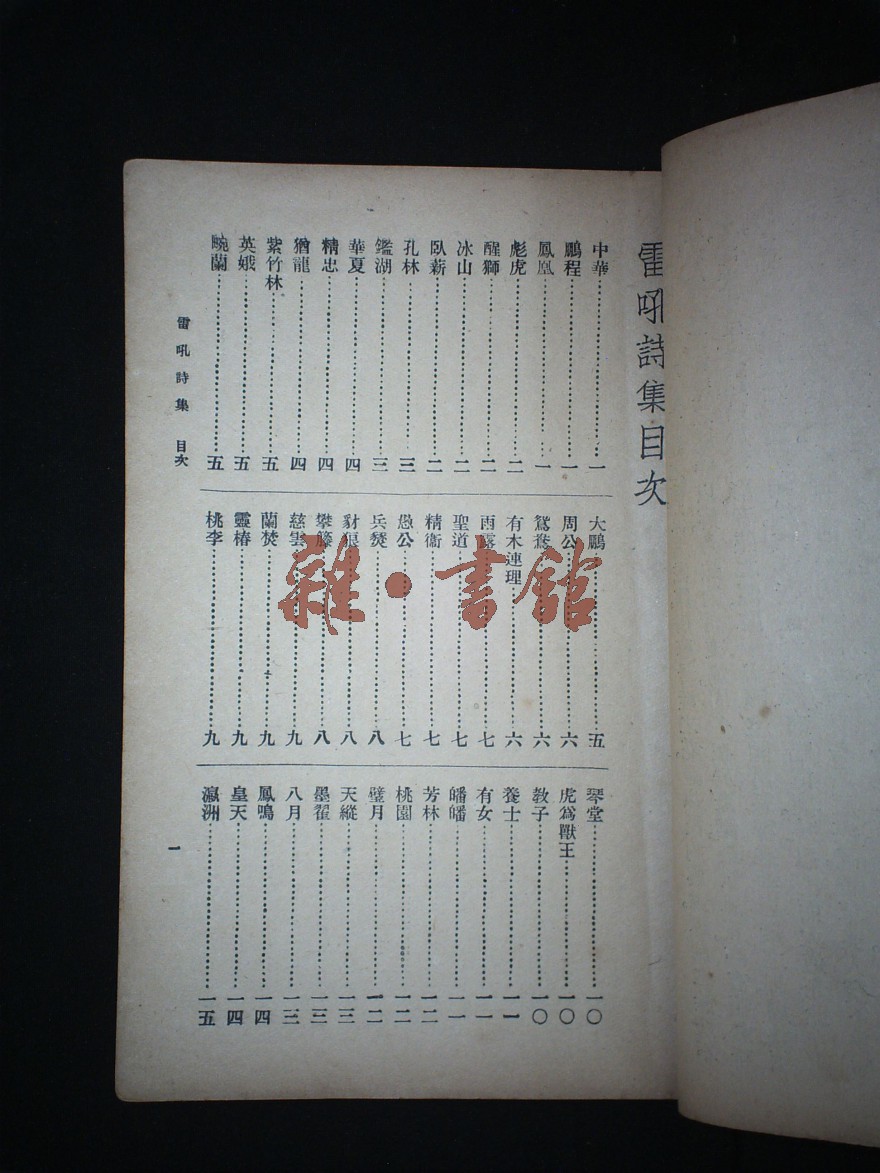 雷吼詩集目次
中華⋯⋯一
鵬程⋯⋯一
鳳凰⋯⋯一
彪虎⋯⋯二
醒獅⋯⋯二
冰山⋯⋯二
臥薪⋯⋯二
孔林⋯⋯三
鑑湖⋯⋯三
華夏⋯⋯四
精忠⋯⋯四
猶龍⋯⋯四
紫竹林⋯⋯五
英娥⋯⋯五
畹蘭⋯⋯五
大鵬⋯⋯五
周公⋯⋯六
鴛鴦⋯⋯六
有木連理⋯⋯六
雨露⋯⋯七
聖道⋯⋯七
精衞⋯⋯七
愚公⋯⋯七
兵燹⋯⋯八
豺狼⋯⋯八
攀籐⋯⋯八
慈雲⋯⋯九
蘭焚⋯⋯九
靈椿⋯⋯九
桃李⋯⋯九
琴堂⋯⋯一〇
虎爲獸王⋯⋯一〇
敎子⋯⋯一〇
養士⋯⋯一一
有女⋯⋯一一
皤皤⋯⋯一一
芳林⋯⋯一二
桃園⋯⋯一二
璧月⋯⋯一二
天縱⋯⋯一三
墨翟⋯⋯一三
八月⋯⋯一三
鳳鳴⋯⋯一四
皇天⋯⋯一四
瀛洲⋯⋯一五
雷吼詩集 目次
一
雜·書館